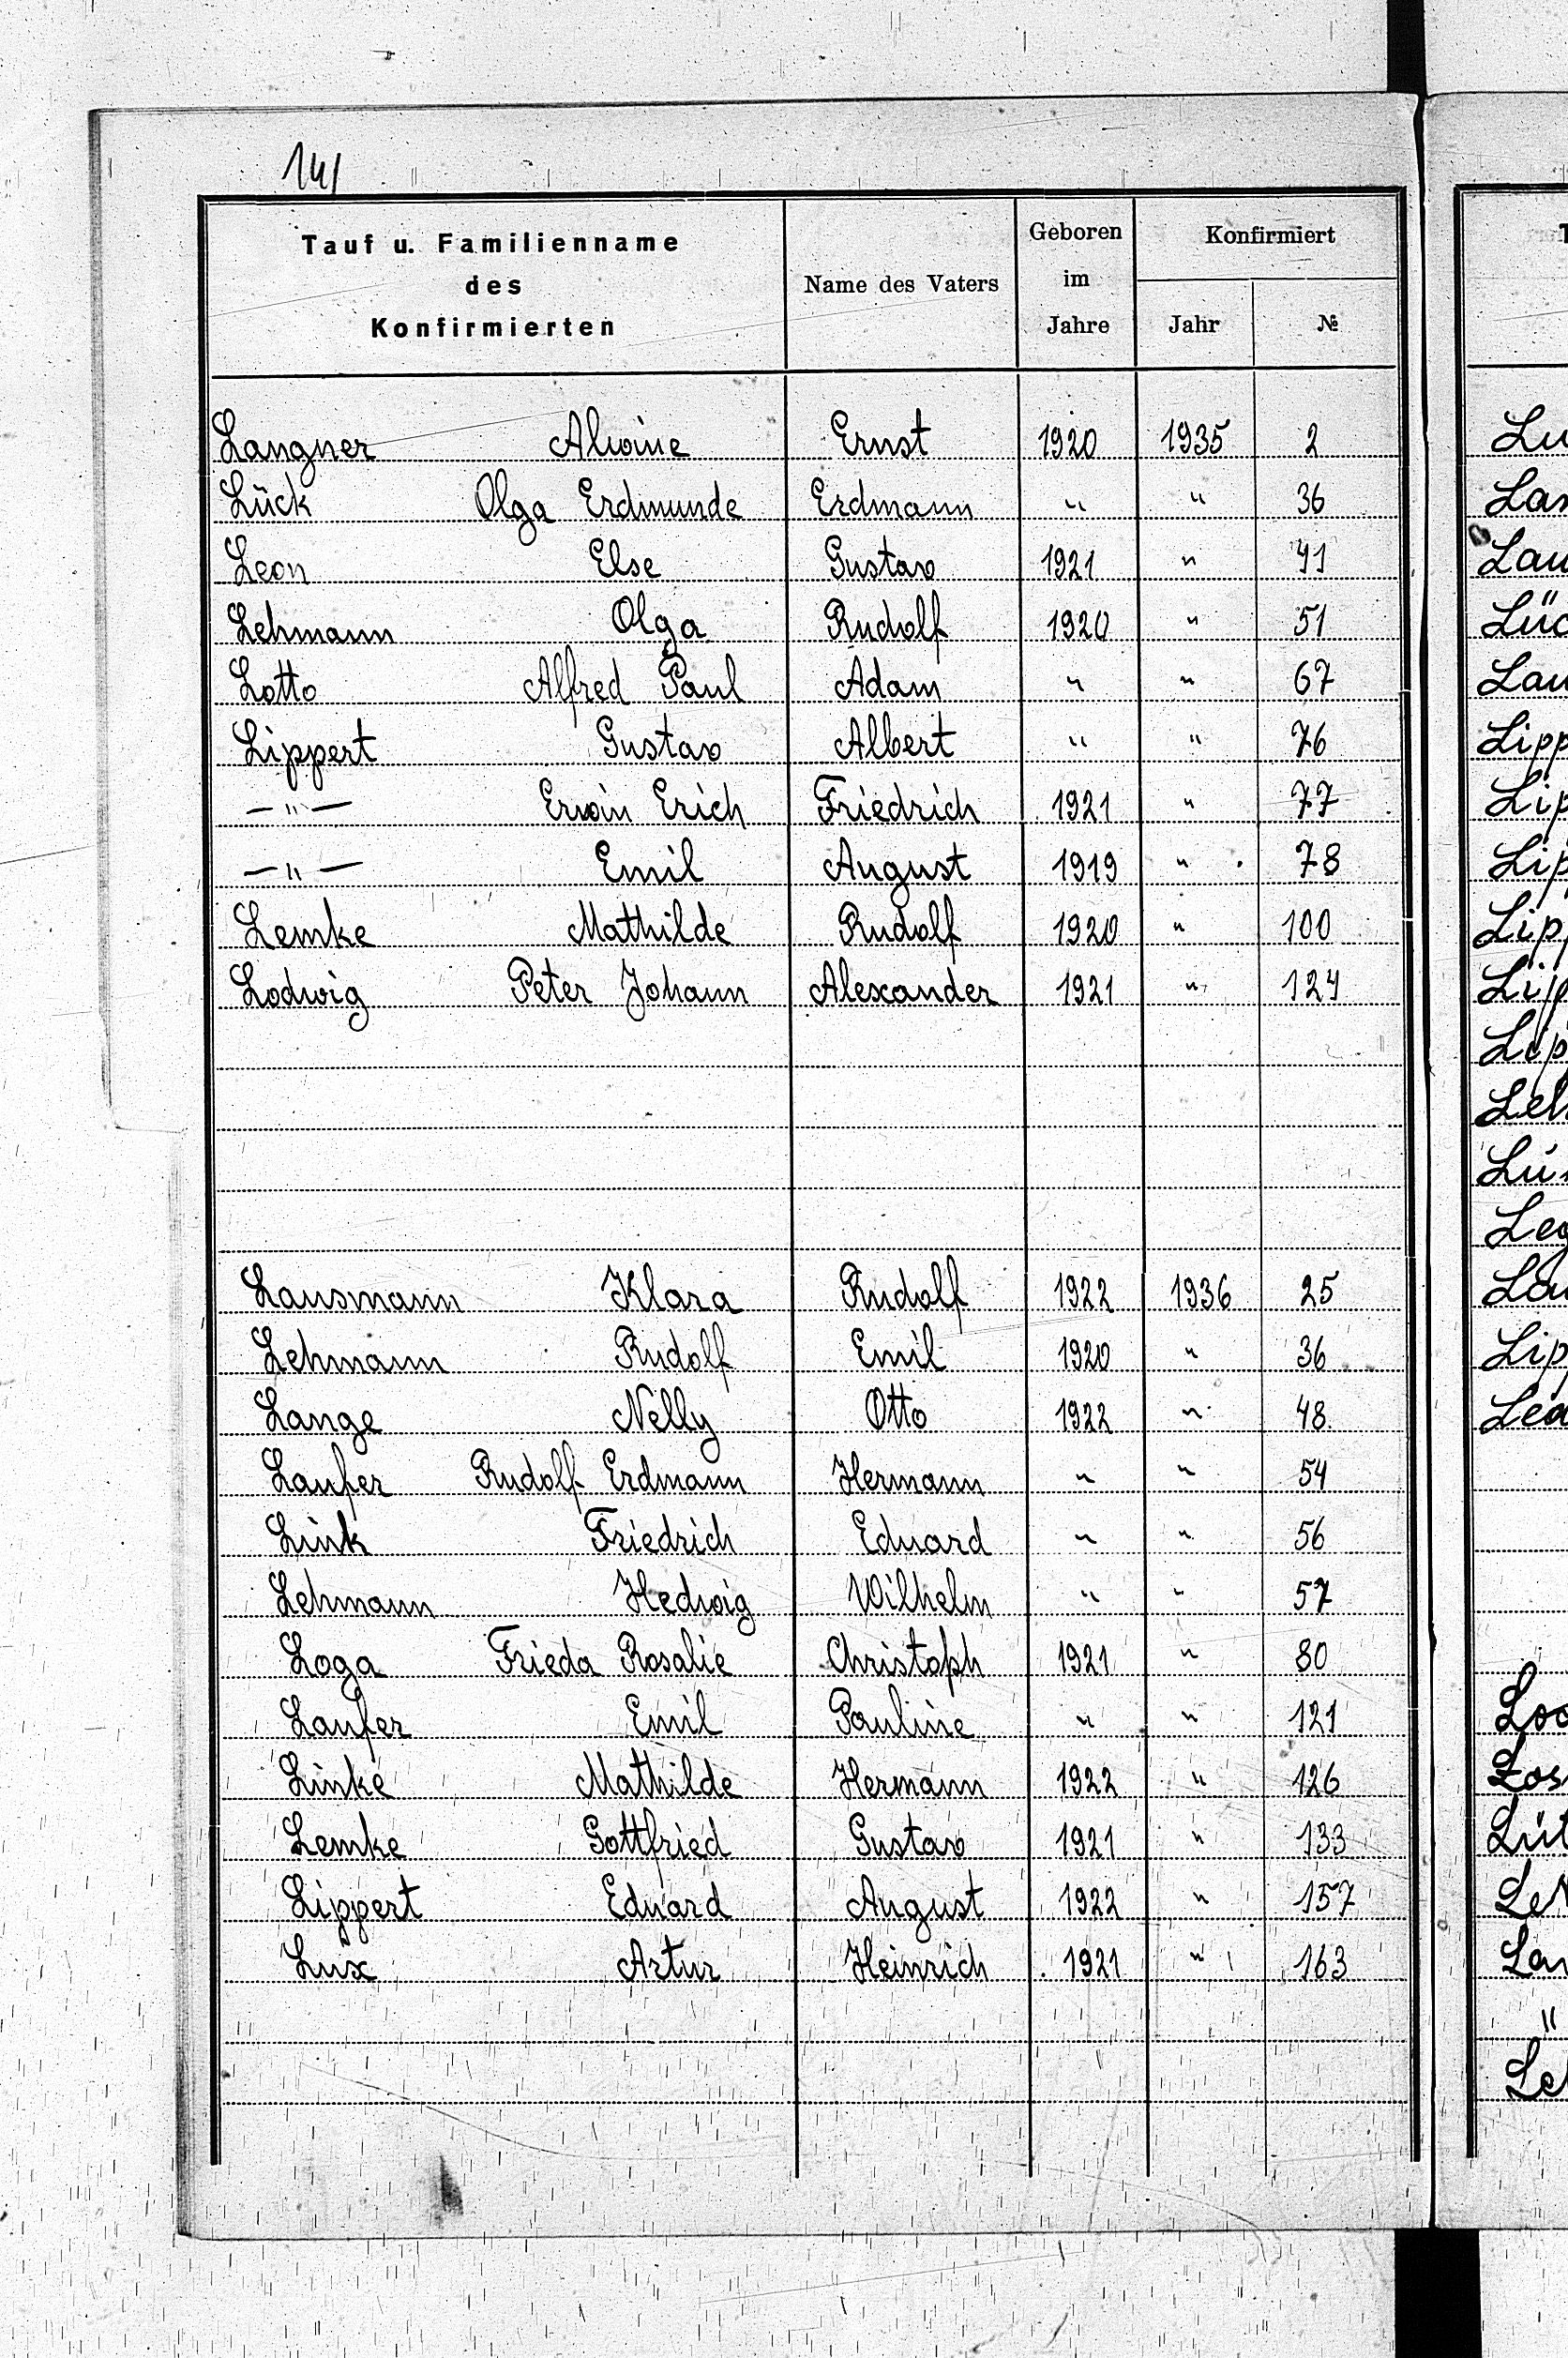 141
Tauf u. Familienname des Konfirmierten | Name des Vaters | Geboren im Jahre | Konfirmiert Jahr | №
Langner Alwine Ernst 1920 1935 2
Lück Olga Erdmunde Erdmann " " 36
Leon Else Gustav 1921 " 41
Lehmann Olga Rudolf 1920 " 51
Lotto Alfred Paul Adam " " 67
Lippert Gustav Albert " " 76
—"— Erwin Erich Friedrich 1921 " 77
—"— Emil August 1919 " 78
Lemke Mathilde Rudolf 1920 " 100
Lodwig Peter Johann Alexander 1921 " 124
Lausmann Klara Rudolf 1922 1936 25
Lehmann Rudolf Emil 1920 " 36
Lange Nelly Otto 1922 " 48
Laufer Rudolf Erdmann Hermann " " 54
Link Friedrich Eduard " " 56
Lehmann Hedwig Wilhelm " " 57
Loga Frieda Rosalie Christoph 1921 " 80
Laufer Emil Pauline " " 121
Linke Mathilde Hermann 1922 " 126
Lemke Gottfried Gustav 1921 " 133
Lippert Eduard August 1922 " 157
Lux Artur Heinrich 1921 " 163